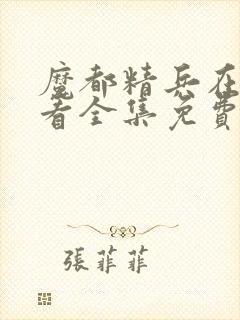 魔都精兵在
看全集免費
張菲菲